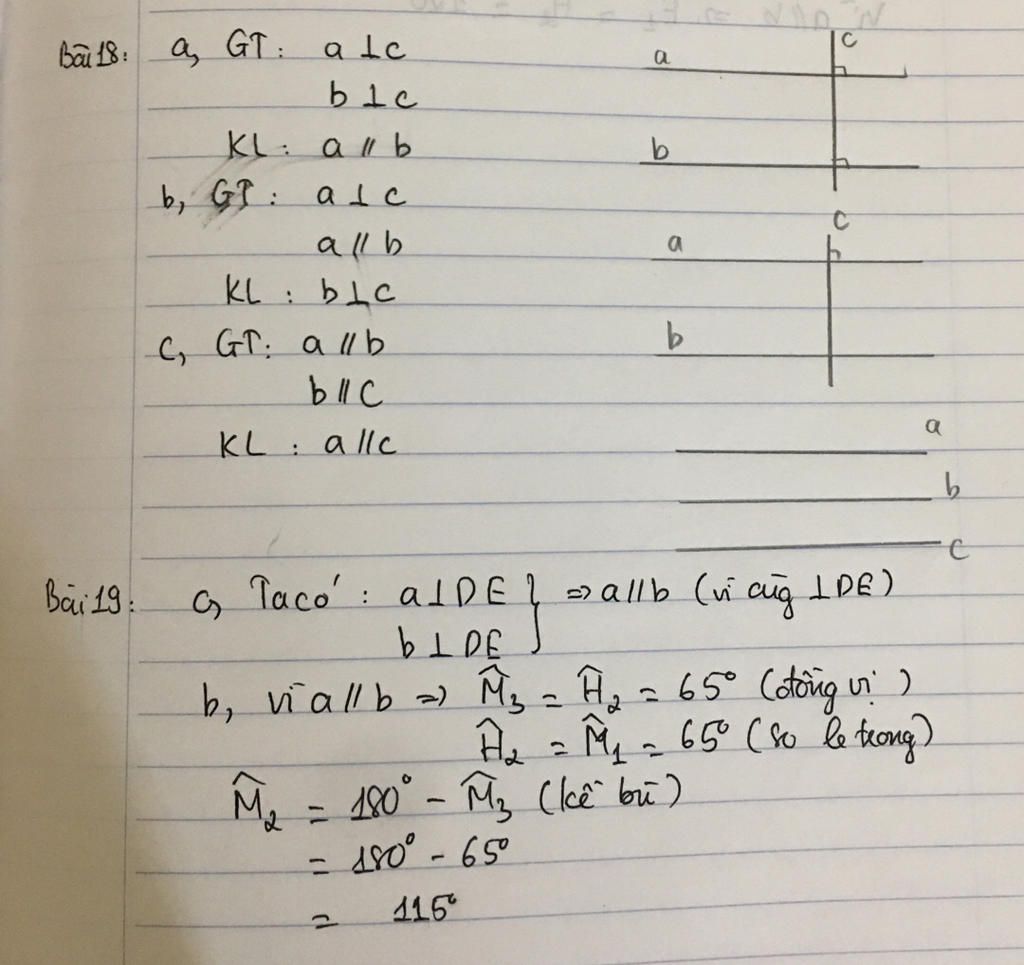 Bài 18: a, GT: a ⊥ c
b ⊥ c
KL: a // b
b, GT: a ⊥ c
a // b
KL: b ⊥ c
c, GT: a // b
b // c
KL: a // c
a
c
b
c
a
b
a
b
c
Bài 19: a, Ta có: a ⊥ DE } => a // b (vì cùg ⊥ DE)
b ⊥ DE
b, vì a // b => M̂₃ = Ĥ₂ = 65° (đồng vị)
Ĥ₂ = M̂₁ = 65° (so le trong)
M̂₂ = 180° - M̂₃ (kề bù)
= 180° - 65°
= 115°